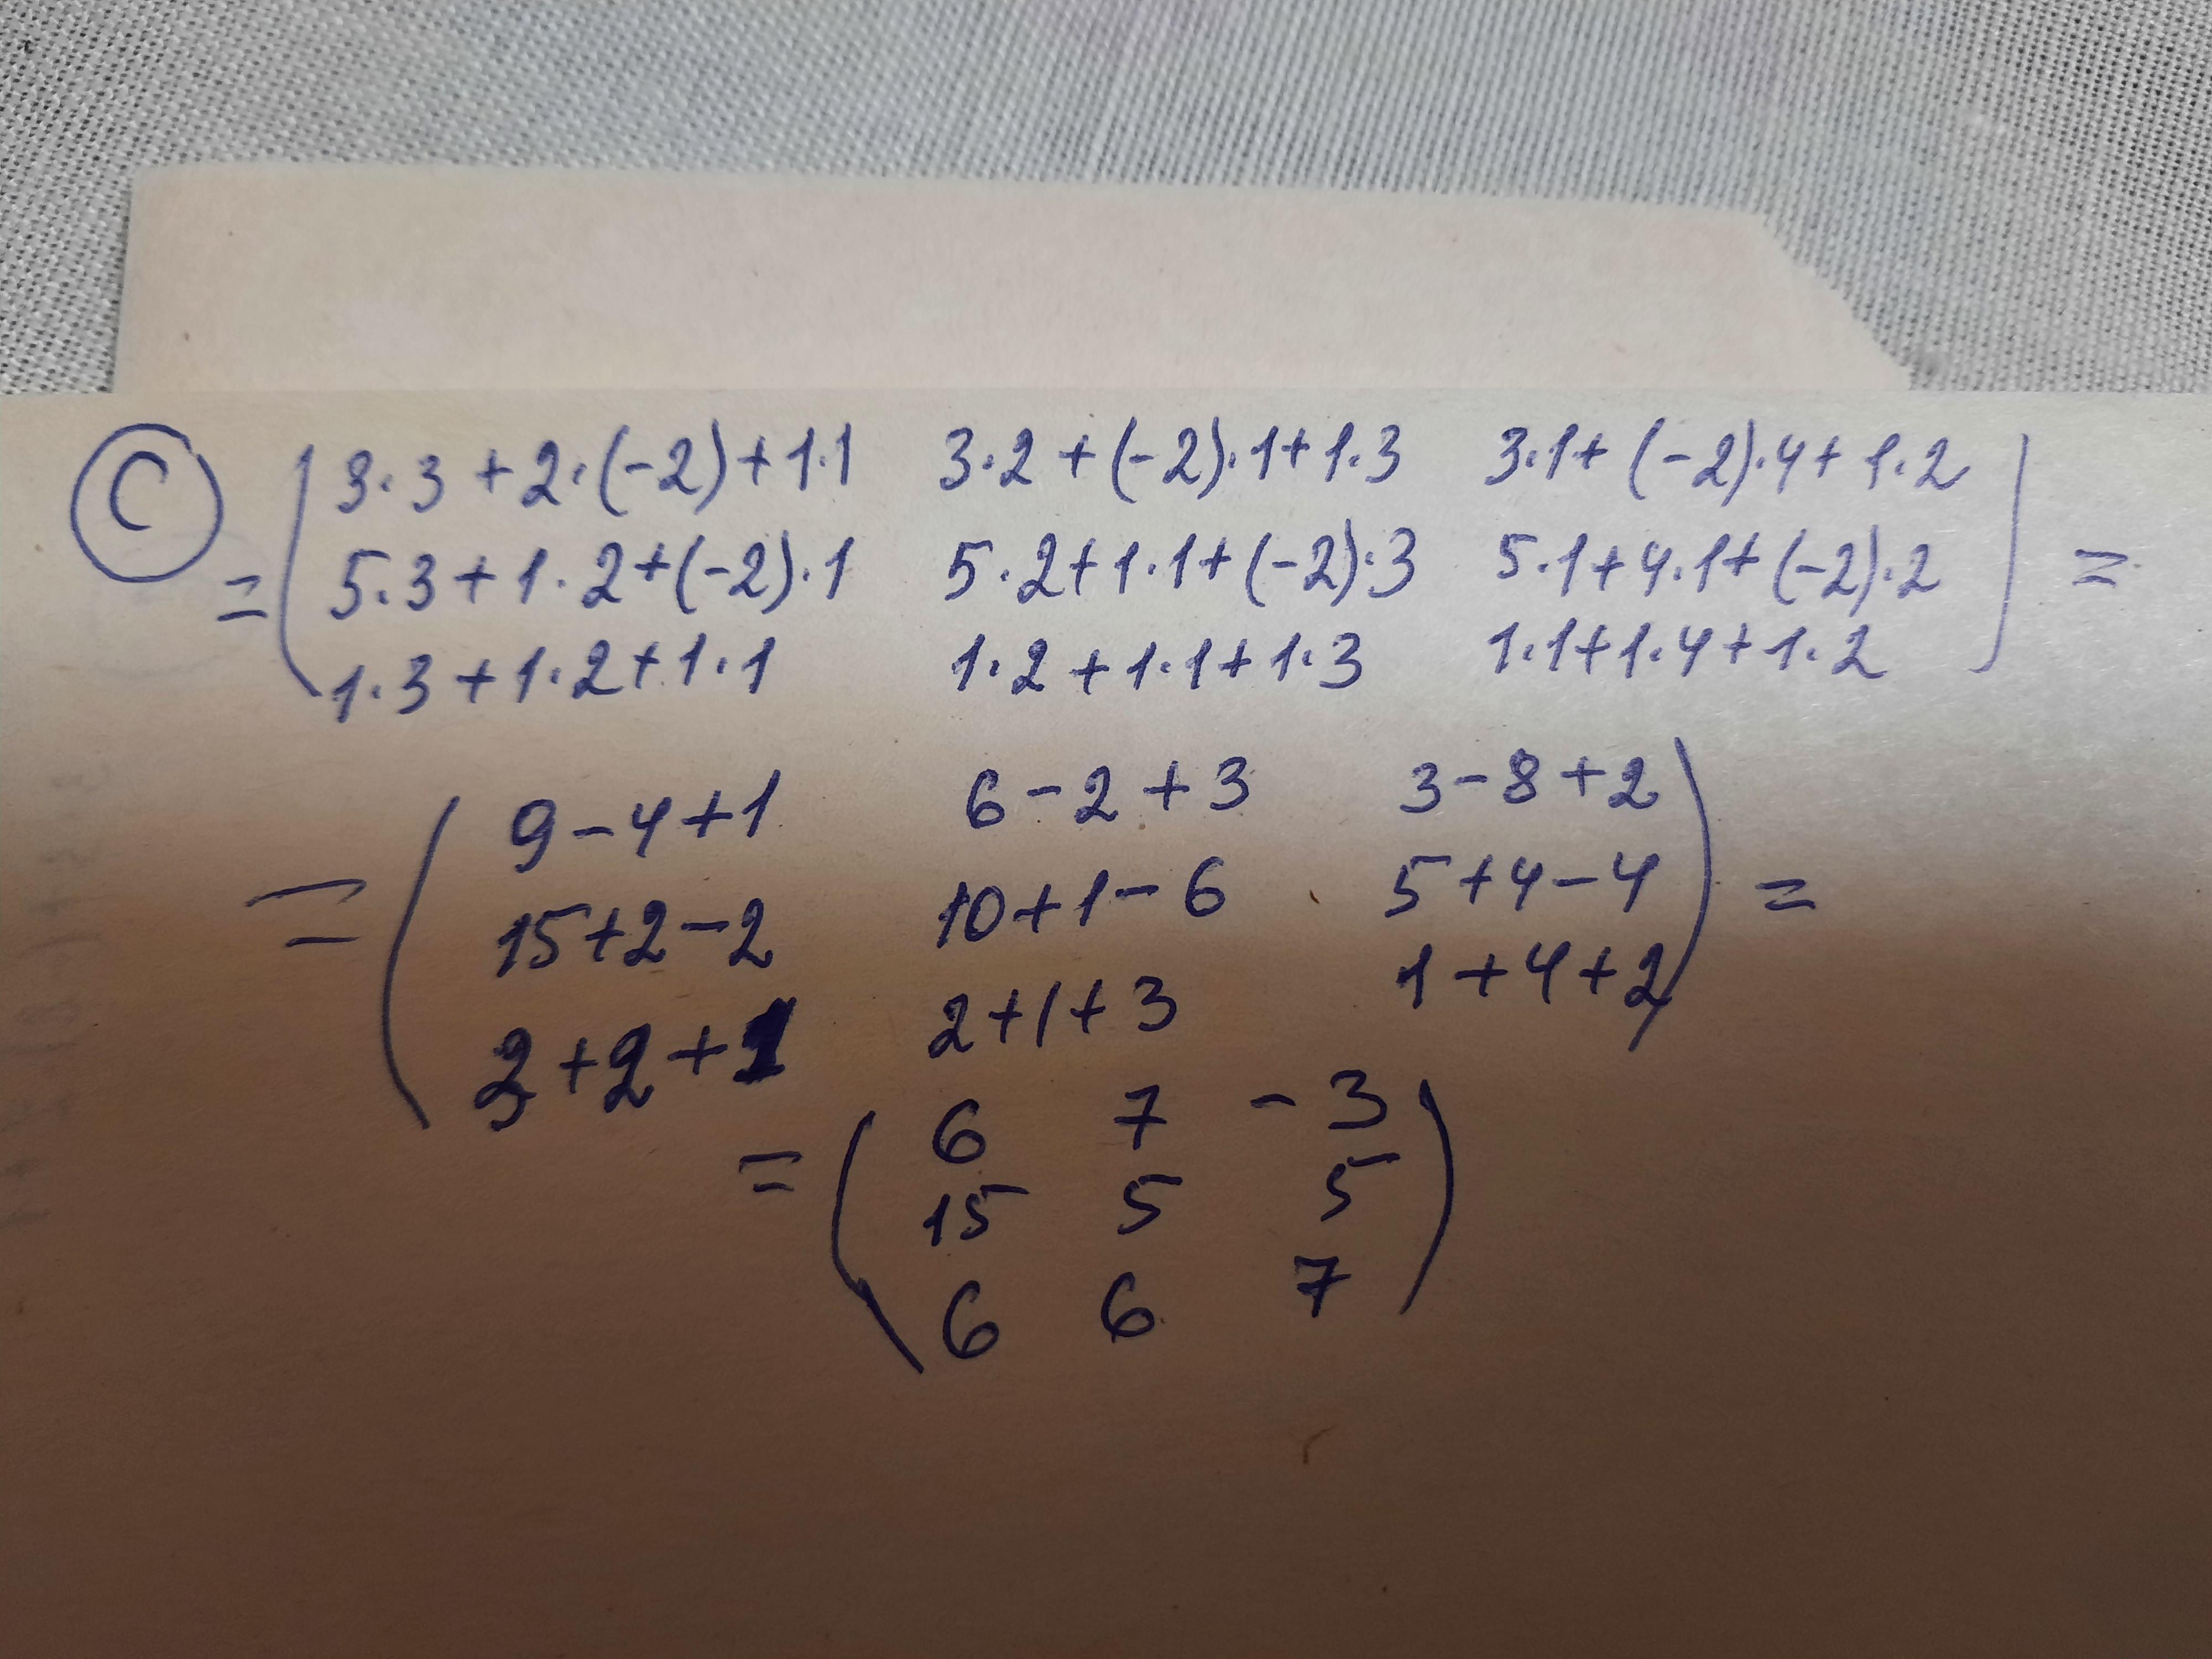 C
= ( 3·3+2·(-2)+1·1 3·2+(-2)·1+1·3 3·1+(-2)·4+1·2
5·3+1·2+(-2)·1 5·2+1·1+(-2)·3 5·1+4·1+(-2)·2 ) =
1·3+1·2+1·1 1·2+1·1+1·3 1·1+1·4+1·2
= ( 9-4+1 6-2+3 3-8+2
15+2-2 10+1-6 5+4-4 ) =
3+2+1 2+1+3 1+4+2
= ( 6 7 -3
15 5 5
6 6 7 )